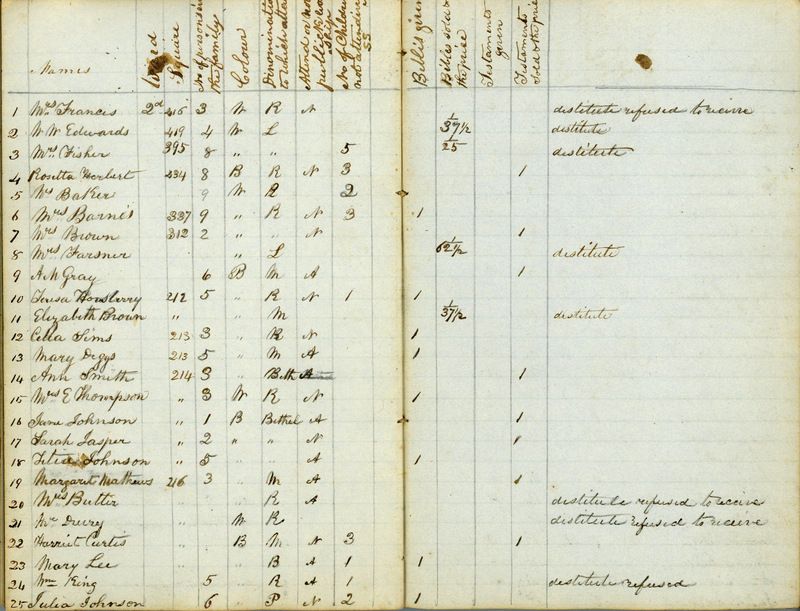 Names Ward Square No of persons in the family Colour Dinomination to which attached Attend or not publick worship No of Children not attending SS Bibles given Bibles sold & the price Testaments given Testaments sold & the price
1 Mrs Francis 2d 416 3 W R N destitute refused to receive
2 W W Edwards 419 4 W L 1 37 1/2 destitute
3 Mrs Fisher 395 8 " " 5 1 25 destitute
4 Rosetta Herbert 234 8 B R N 3 1
5 Mrs Baker 9 W R 2
6 Mrs Barnes 337 9 " R N 3 1
7 Mrs Brown 312 2 " " N 1
8 Mrs Farsner " L 1 62 1/2 destitute
9 A M Gray 6 B M A 1
10 Teresa 212 5 " R N 1 1
11 Elizabeth Brown " " M 1 37 1/2 destitute
12 Celia Sims 213 3 " R N 1
13 Mary Diggs 213 5 " M A 1
14 Ann Smith 214 3 " Beth A 1
15 Mrs E Thompson " 3 W R N 1
16 Jane Johnson " 1 B Bethel A 1
17 Sarah Jasper " 2 " " N 1
18 Johnson " 5 " " A 1
19 Margaret Mathews 216 3 " M A 1
20 Mrs Butler " " R A destitute refused to receive
21 Mr Drury " W R destitute refused to receive
22 Harriet Curtis " B M N 3 1
23 Mary Lee " " B A 1 1
24 Wm King 5 " R A 1 destitute refused
25 Julia Johnson 6 " P N 2 1